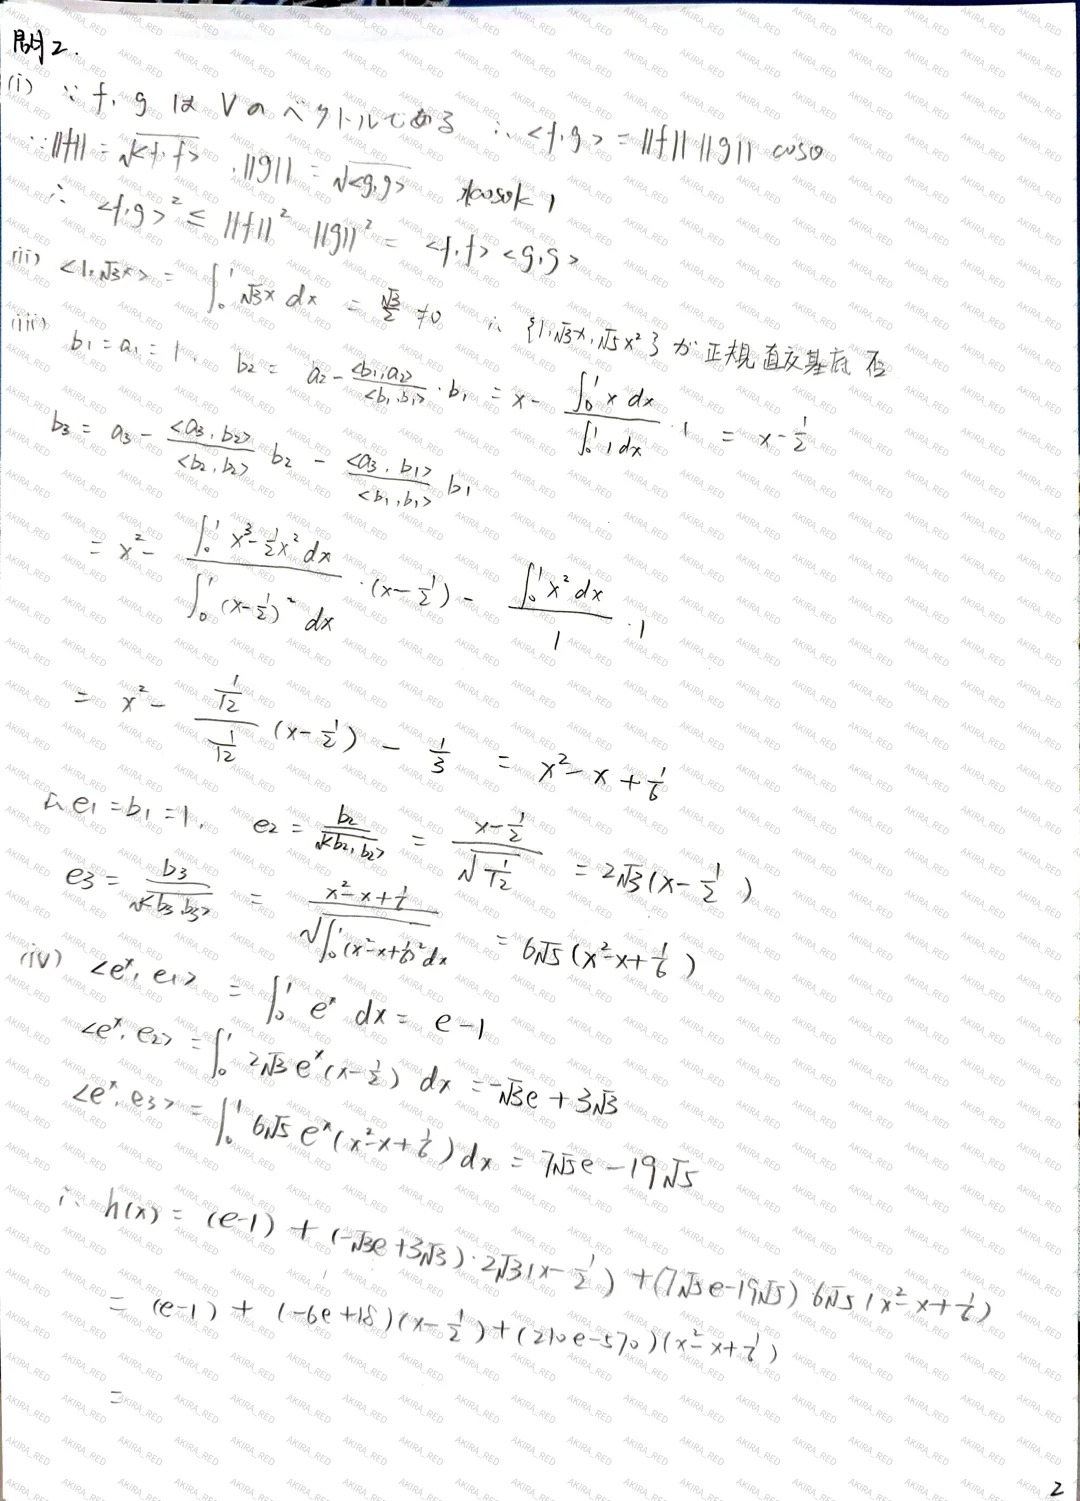 問2.
(i) ∵ f, g は V の ベクトルである ∴ <f,g> = ||f|| ||g|| cosθ
∵ ||f|| = √<f,f> , ||g|| = √<g,g> |cosθ|< 1
∴ <f,g>² ≤ ||f||² ||g||² = <f,f> <g,g>
(ii) <1,√3x> = ∫₀¹ √3x dx = √3/2 ≠0 ∴ {1,√3x,√5x²} が 正規直交基底 否
(iii) b₁ = a₁ = 1, b₂ = a₂ - <b₁,a₂>/<b₁,b₁> · b₁ = x - ∫₀¹ x dx / ∫₀¹ 1 dx · 1 = x - 1/2
b₃ = a₃ - <a₃,b₂>/<b₂,b₂> b₂ - <a₃,b₁>/<b₁,b₁> b₁
= x² - ∫₀¹ x³-1/2x² dx / ∫₀¹ (x-1/2)² dx · (x-1/2) - ∫₀¹ x² dx / 1 · 1
= x² - (1/12)/(1/12) (x-1/2) - 1/3 = x² - x + 1/6
∴ e₁ = b₁ = 1, e₂ = b₂/√<b₂,b₂> = (x-1/2)/√(1/12) = 2√3(x-1/2)
e₃ = b₃/√<b₃,b₃> = (x²-x+1/6)/√(∫₀¹(x²-x+1/6)²dx) = 6√5(x²-x+1/6)
(iv) <eˣ, e₁> = ∫₀¹ eˣ dx = e-1
<eˣ, e₂> = ∫₀¹ 2√3 eˣ(x-1/2) dx = -√3e + 3√3
<eˣ, e₃> = ∫₀¹ 6√5 eˣ(x²-x+1/6) dx = 7√5e - 19√5
∴ h(x) = (e-1) + (-√3e+3√3)·2√3(x-1/2) + (7√5e-19√5) 6√5(x²-x+1/6)
= (e-1) + (-6e+18)(x-1/2) + (210e-570)(x²-x+1/6)
=
2
AKIRA_RED